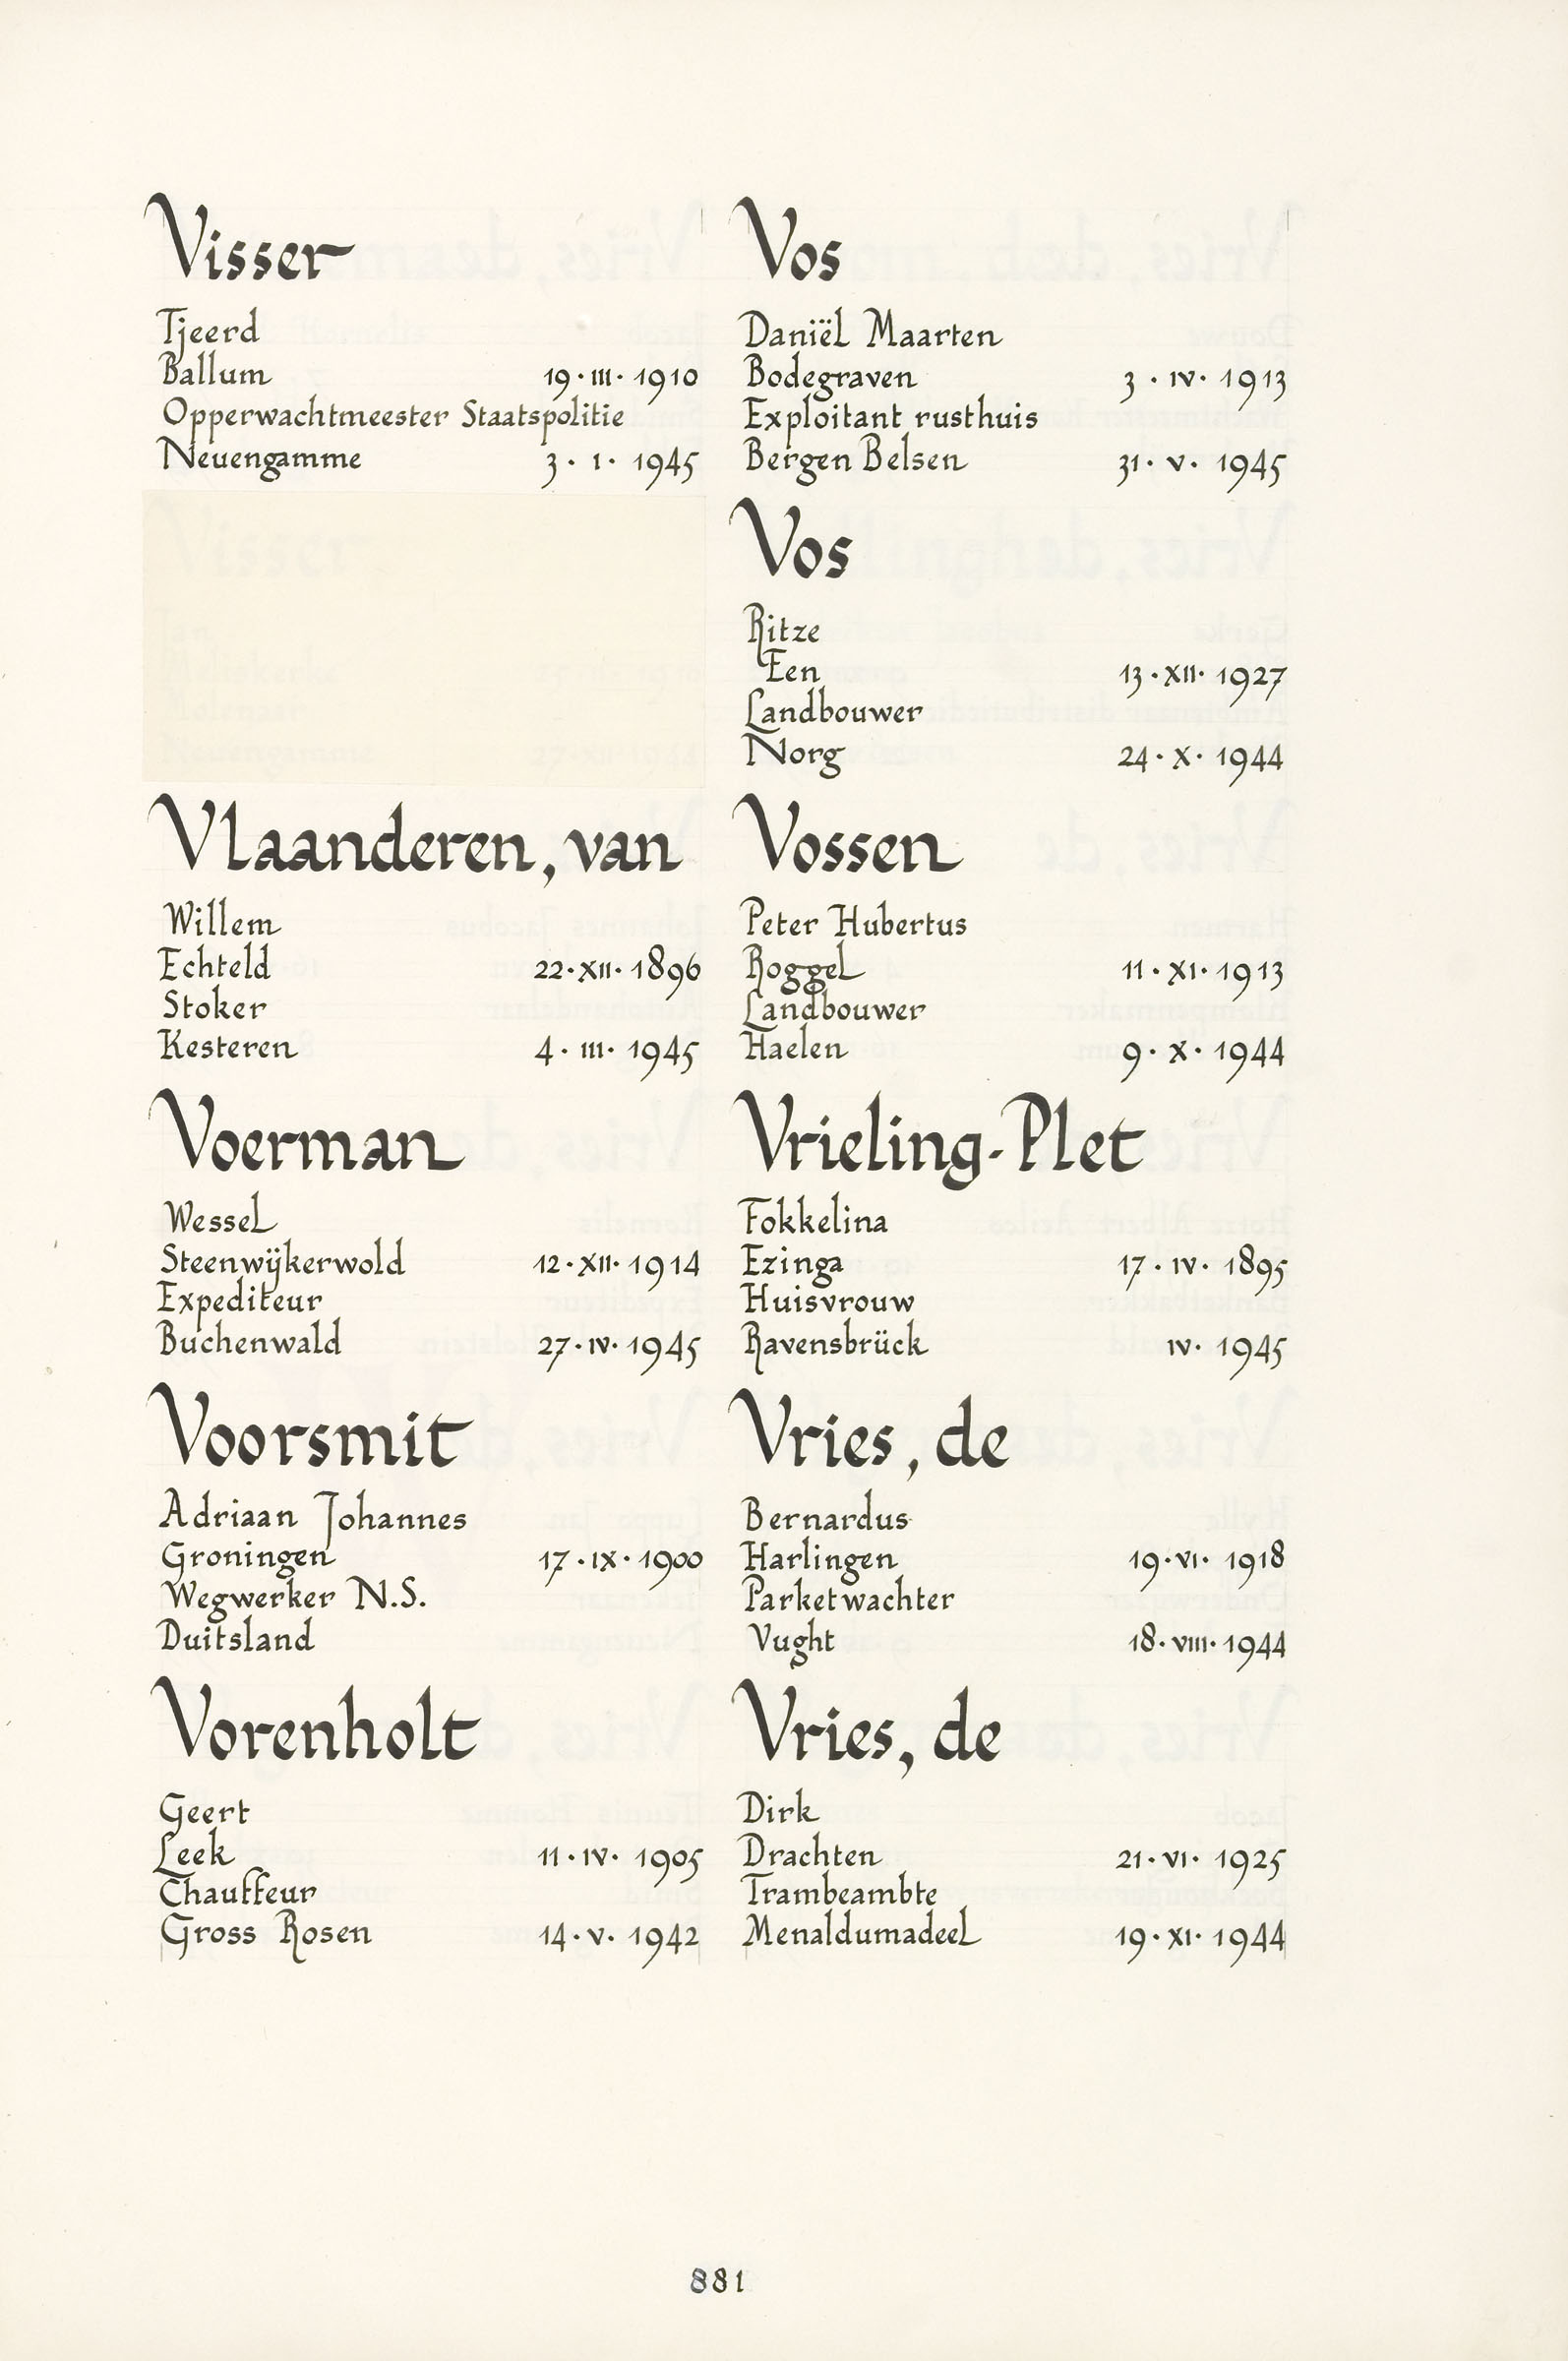 Visser
Tjeerd
Ballum 19·III·1910
Opperwachtmeester Staatspolitie
Neuengamme 3·I·1945
Visser
Jan
Meliskerke
Molenaar
Neuengamme 27·XII·1944
Vlaanderen, van
Willem
Echteld 22·XII·1896
Stoker
Kesteren 4·III·1945
Voerman
Wessel
Steenwijkerwold 12·XII·1914
Expediteur
Buchenwald 27·IV·1945
Voorsmit
Adriaan Johannes
Groningen 17·IX·1900
Wegwerker N.S.
Duitsland
Vorenholt
Geert
Leek 11·IV·1905
Chauffeur
Gross Rosen 14·V·1942
Vos
Daniël Maarten
Bodegraven 3·IV·1913
Exploitant rusthuis
Bergen Belsen 31·V·1945
Vos
Ritze
Een 13·XII·1927
Landbouwer
Norg 24·X·1944
Vossen
Peter Hubertus
Roggel 11·XI·1913
Landbouwer
Haelen 9·X·1944
Vrieling-Plet
Fokkelina
Ezinga 17·IV·1895
Huisvrouw
Ravensbrück IV·1945
Vries, de
Bernardus
Harlingen 19·VI·1918
Parketwachter
Vught 18·VIII·1944
Vries, de
Dirk
Drachten 21·VI·1925
Trambeambte
Menaldumadeel 19·XI·1944
881